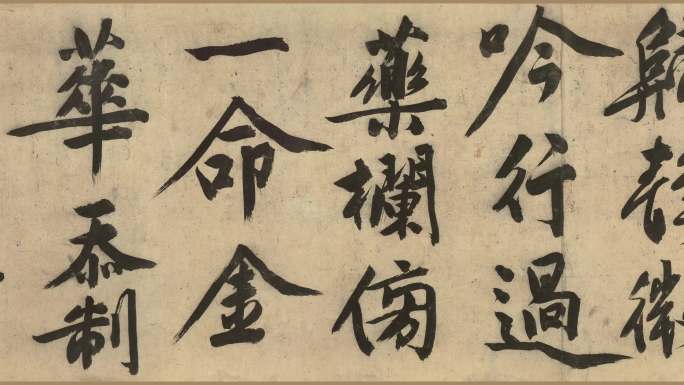 微
吟行過
藥欄傍
一命金
華忝制